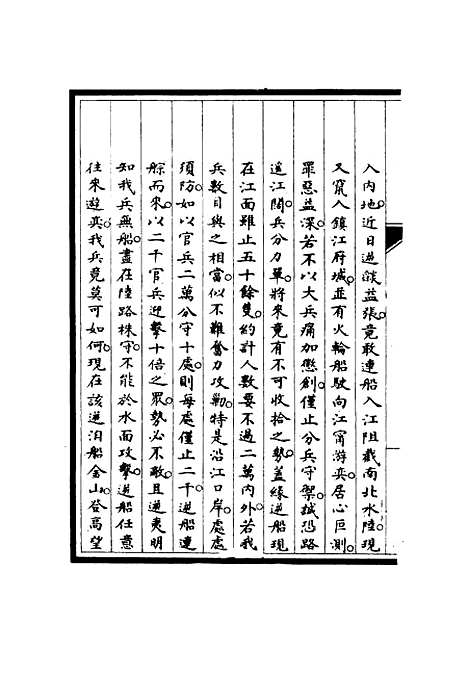 入内地。近日逆燄益張。竟敢連船入江。阻截南北水陸。現
又竄入鎮江府城。並有火輪船駛向江甯游奕。居心叵測。
罪惡益深。若不以大兵痛加懲創。僅止分兵守禦。誠恐路
遠江闊。兵分力單。將來竟有不可收拾之勢。蓋緣逆船現
在江面雖止五十餘隻。約計人數要不過二萬内外。若我
兵數目與之相當。似不難奮力攻勦。特是沿江口岸。處處
須防。如以官兵二萬分守十處。則每處僅止二千。逆船連
䑸而來。以二千官兵迎擊十倍之眾。勢必不敵。且逆夷明
知我兵無船。盡在陸路株守。不能於水面攻擊。逆船任意
往來遊奕。我兵竟莫可如何。現在該逆泊船金山。登高望